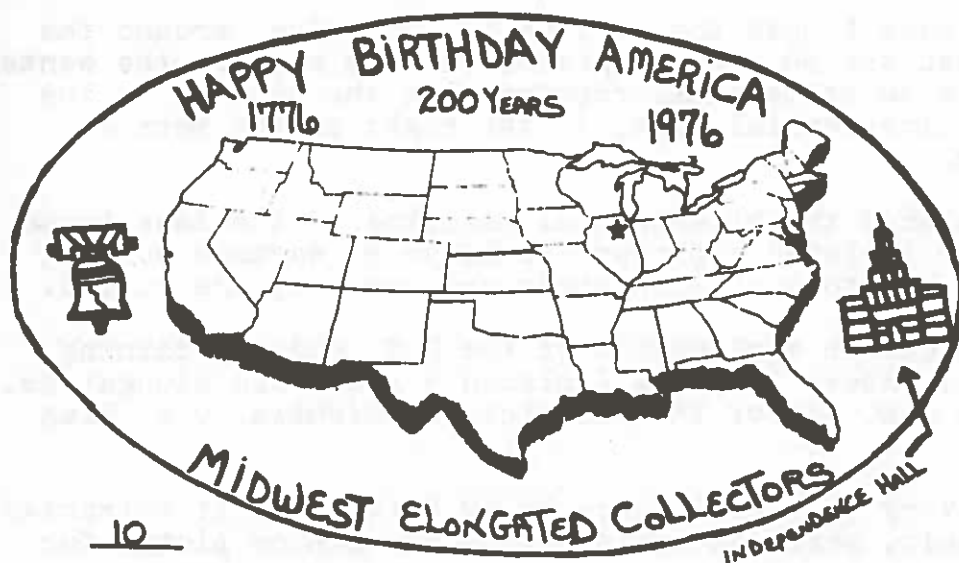 HAPPY BIRTHDAY AMERICA
1776 200 YEARS 1976
MIDWEST ELONGATED COLLECTORS
INDEPENDENCE HALL
10